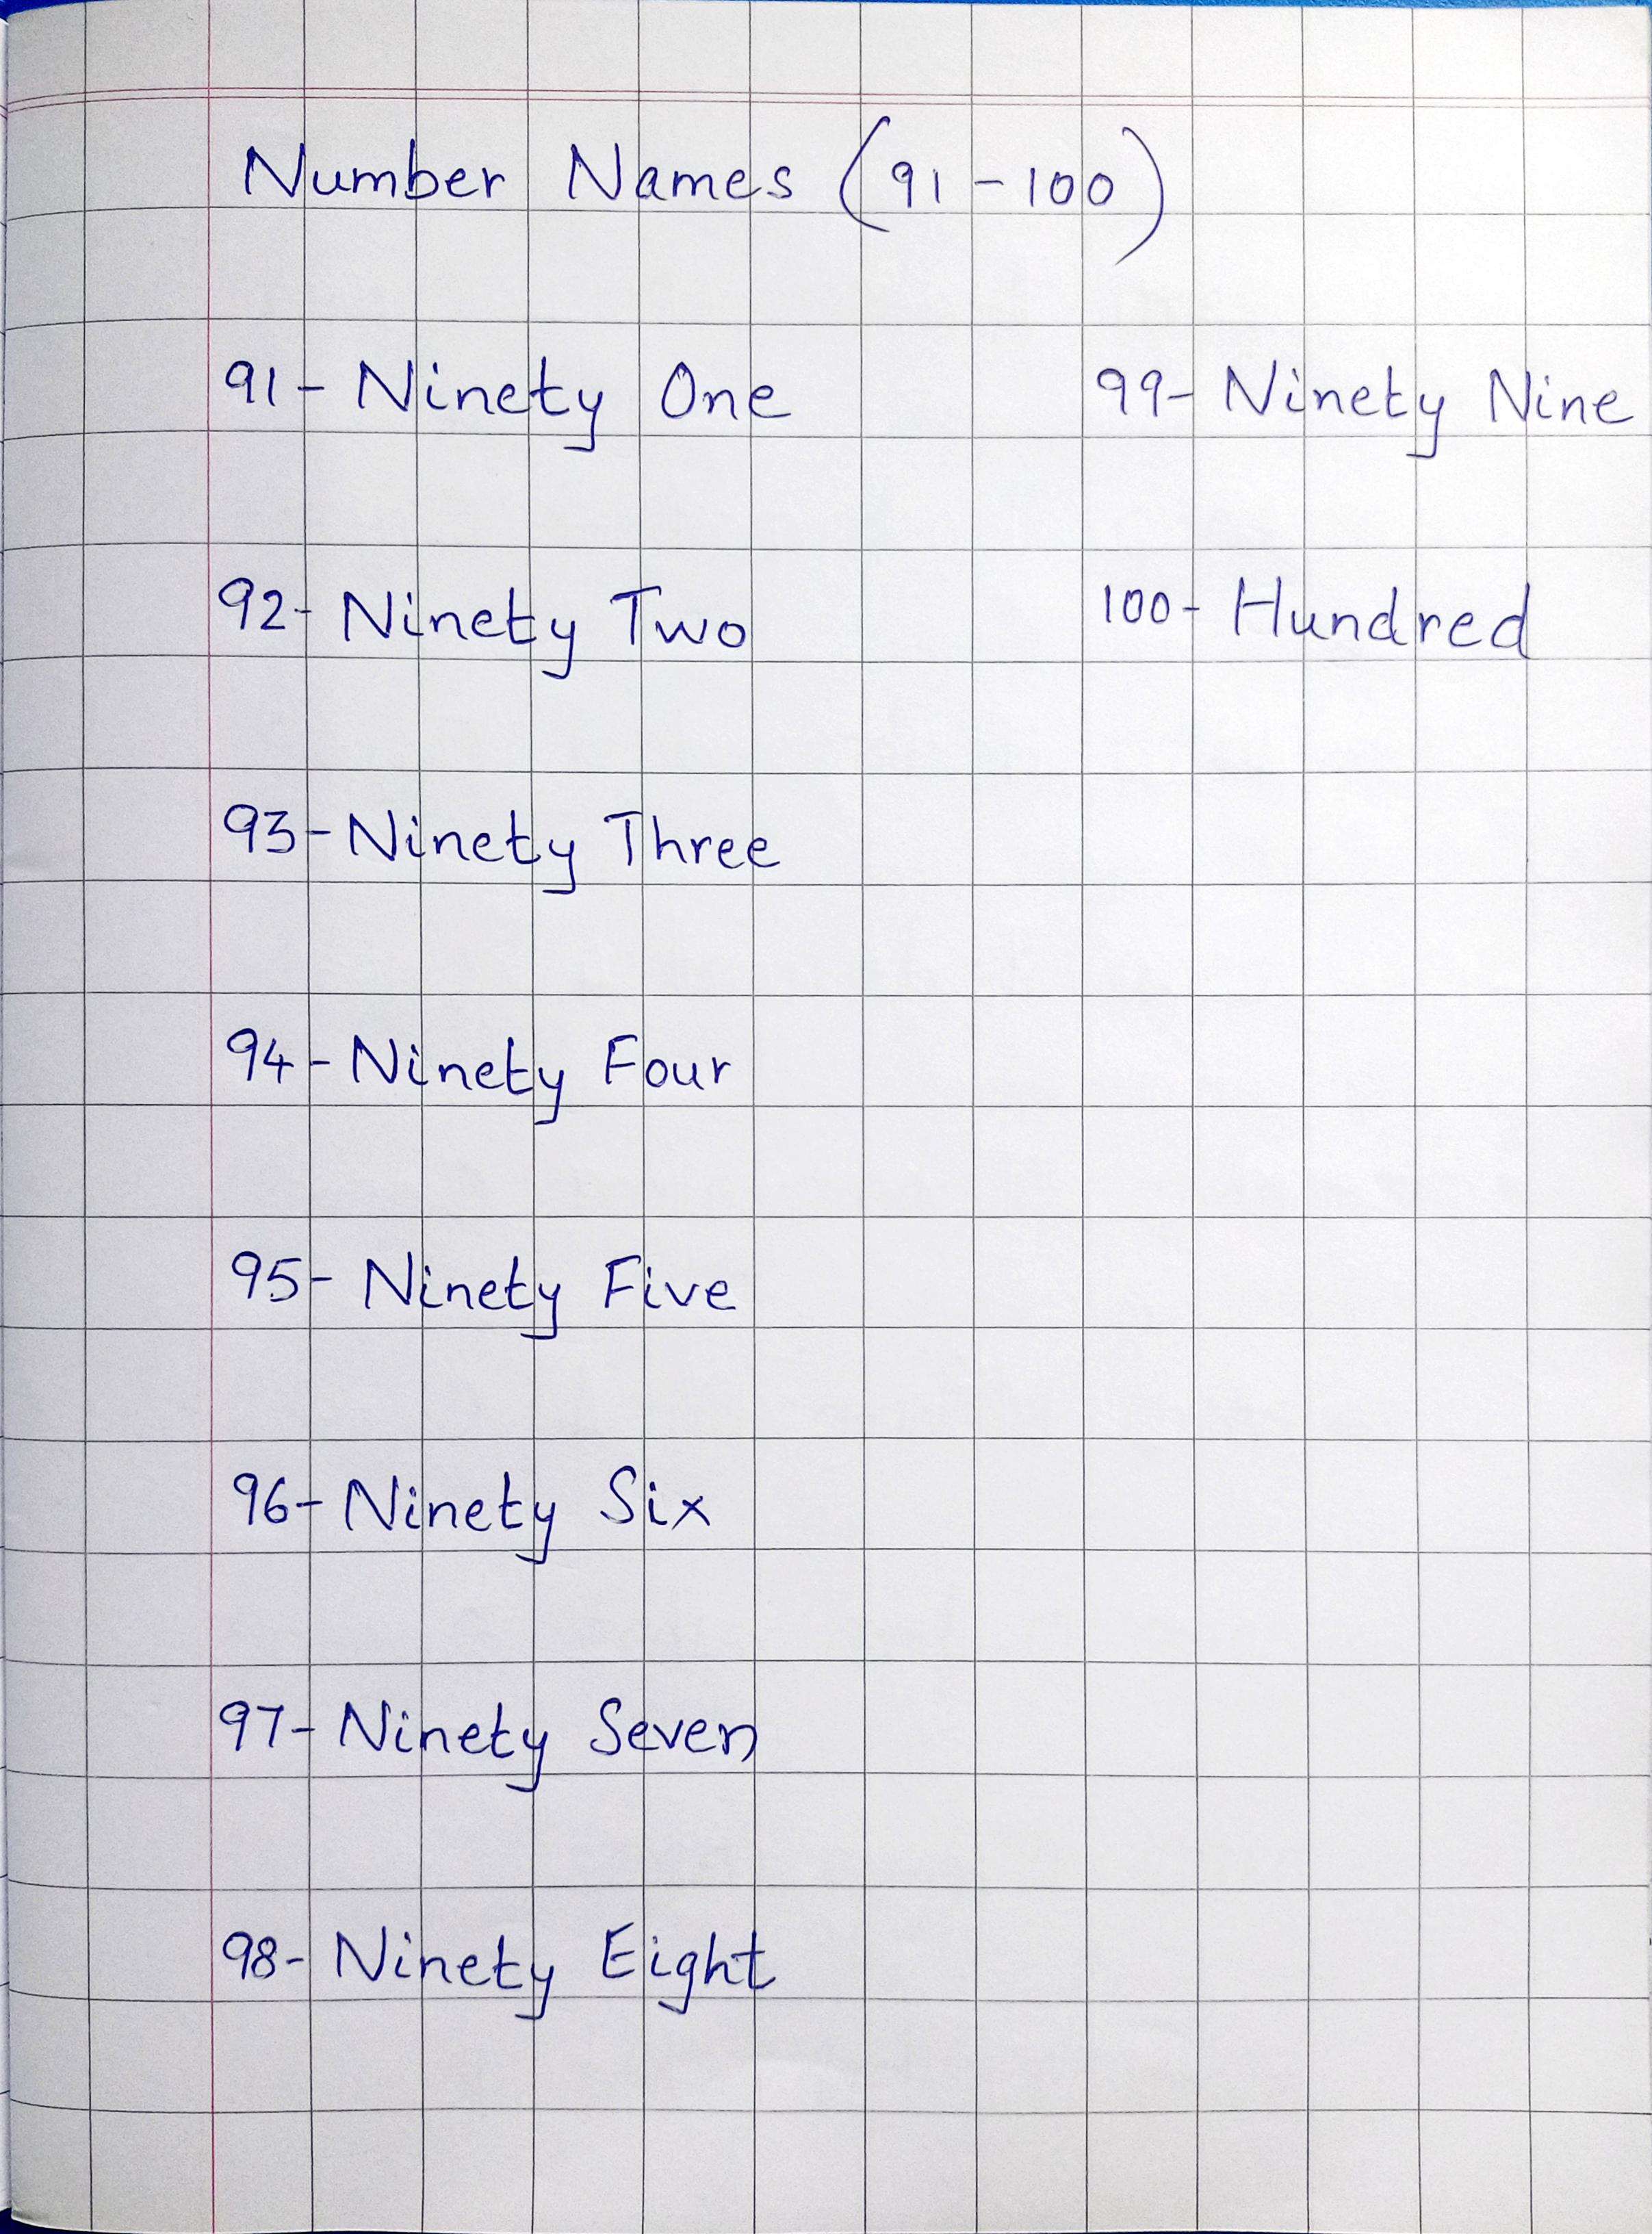 Number Names (91-100)
91- Ninety One
92- Ninety Two
93- Ninety Three
94- Ninety Four
95- Ninety Five
96- Ninety Six
97- Ninety Seven
98- Ninety Eight
99- Ninety Nine
100- Hundred